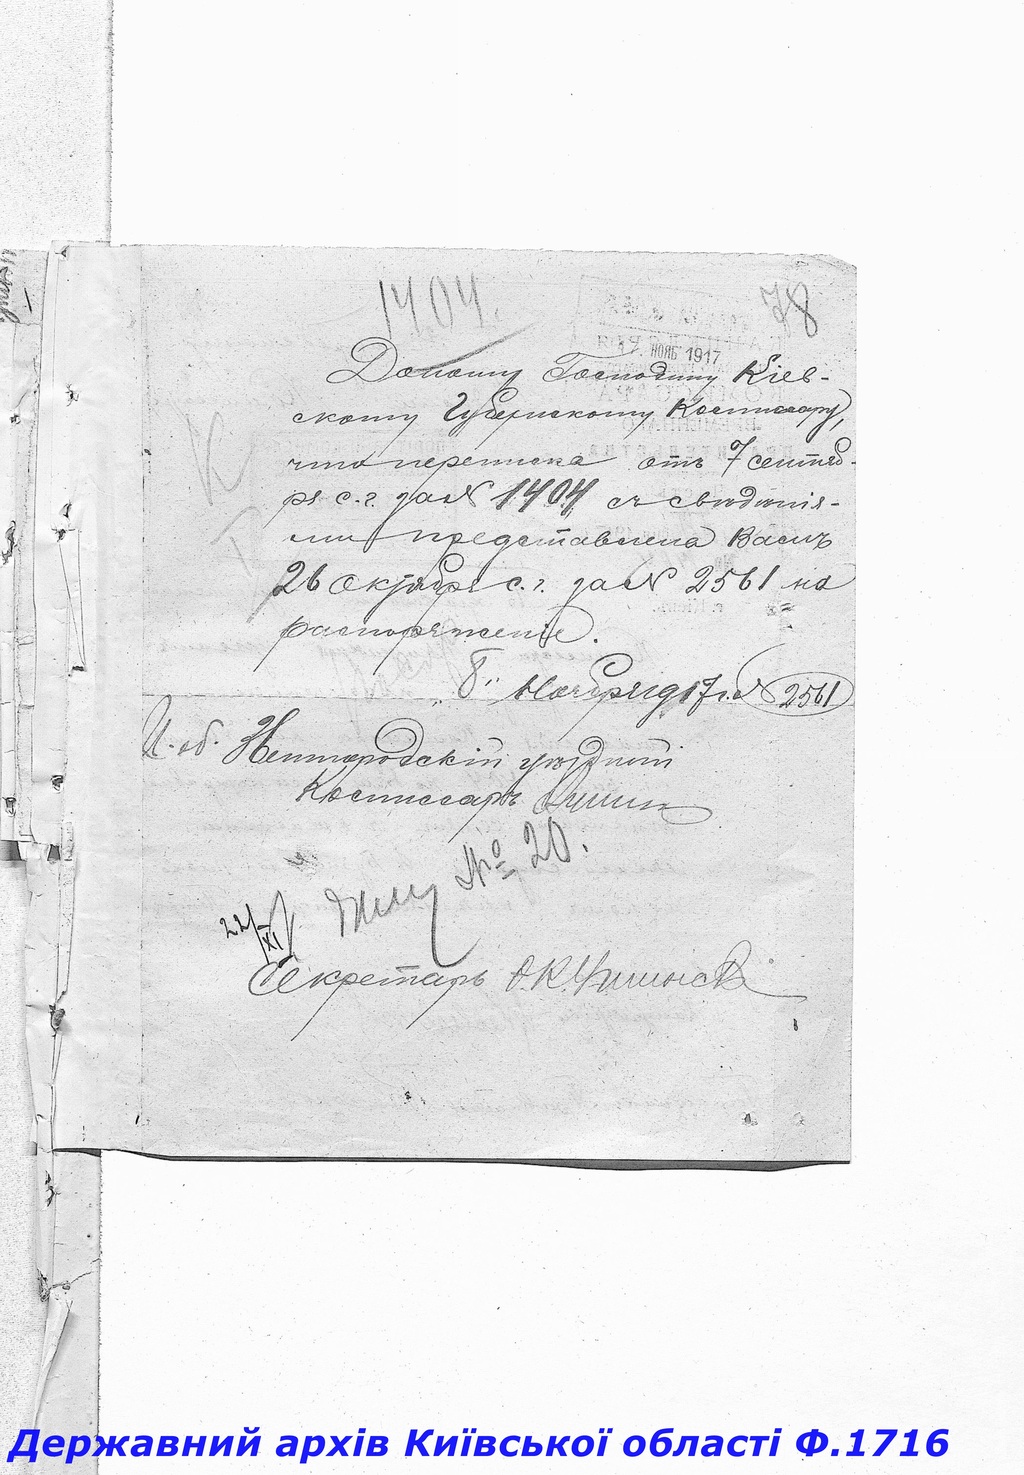 1404.
78
17. НОЯБ 1917
Доношу Господину Кіев-
скому Губернскому Комиссару,
что переписка отъ 7 сентяб-
ря с. г. за № 1404 съ свѣдѣнія-
ми представлена Вамъ
26 Октября с. г. за № 2561 на
распоряженіе.
„8„ Ноября 1917 г. № 2561
И. об. уѣздный
Комиссаръ
22/XI
№ 20.
Секретарь
Державний архів Київської області Ф.1716